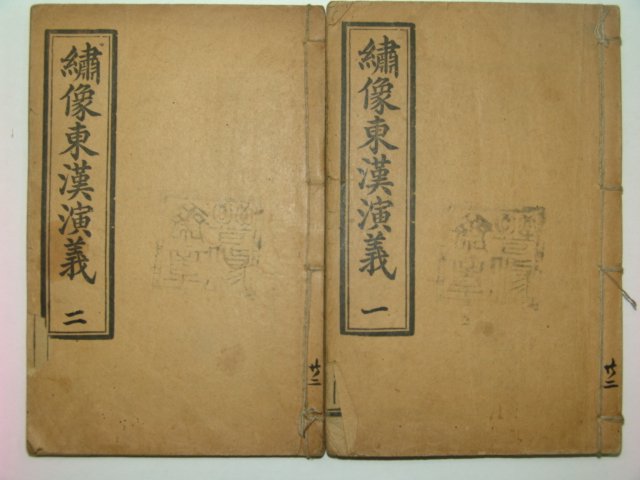 繡像東漢演義 一
繡像東漢演義 二
廿二
廿二